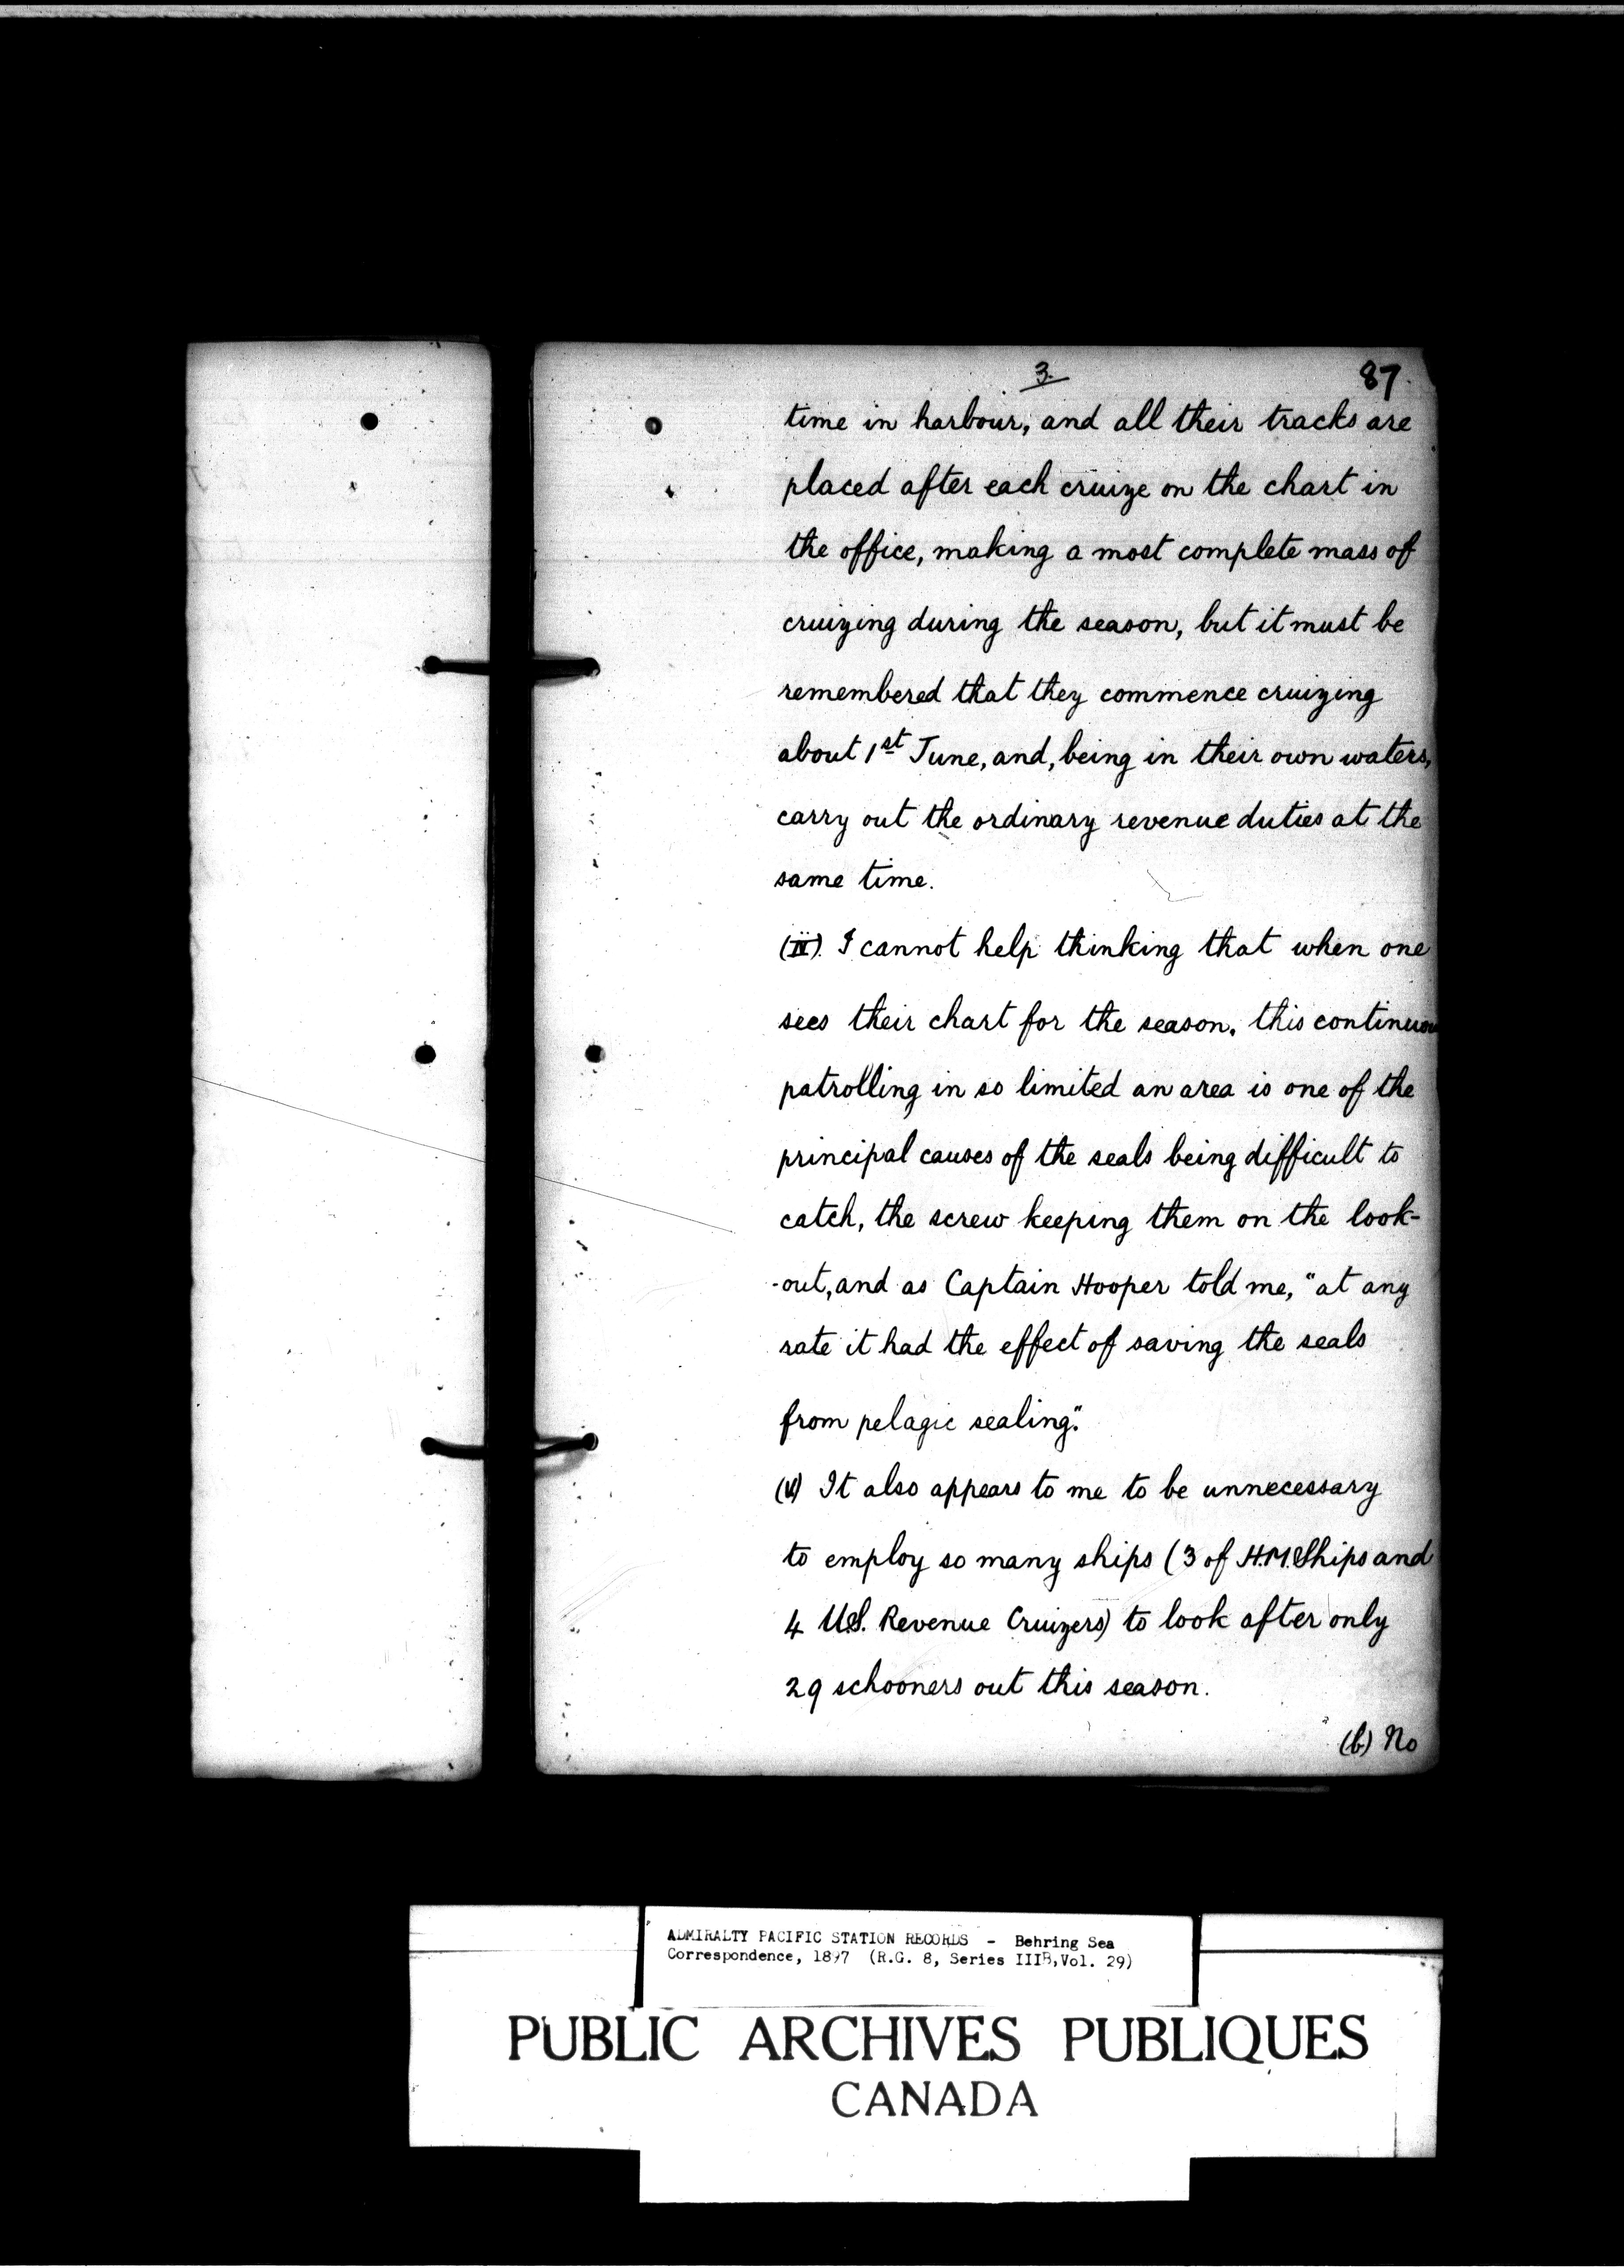 3.
87.
time in harbour, and all their tracks are
placed after each cruize on the chart in
the office, making a most complete mass of
cruizing during the season, but it must be
remembered that they commence cruizing
about 1st June, and, being in their own waters,
carry out the ordinary revenue duties at the
same time.
(IV). I cannot help thinking that when one
sees their chart for the season, this continuou
patrolling in so limited an area is one of the
principal causes of the seals being difficult to
catch, the screw keeping them on the look-
-out, and as Captain Hooper told me, "at any
rate it had the effect of saving the seals
from pelagic sealing".
(V) It also appears to me to be unnecessary
to employ so many ships (3 of H.M. Ships and
4 U.S. Revenue Cruizers) to look after only
29 schooners out this season.
(b) No
ADMIRALTY PACIFIC STATION RECORDS - Behring Sea
Correspondence, 1897 (R.G. 8, Series IIIB, Vol. 29)
PUBLIC ARCHIVES PUBLIQUES
CANADA